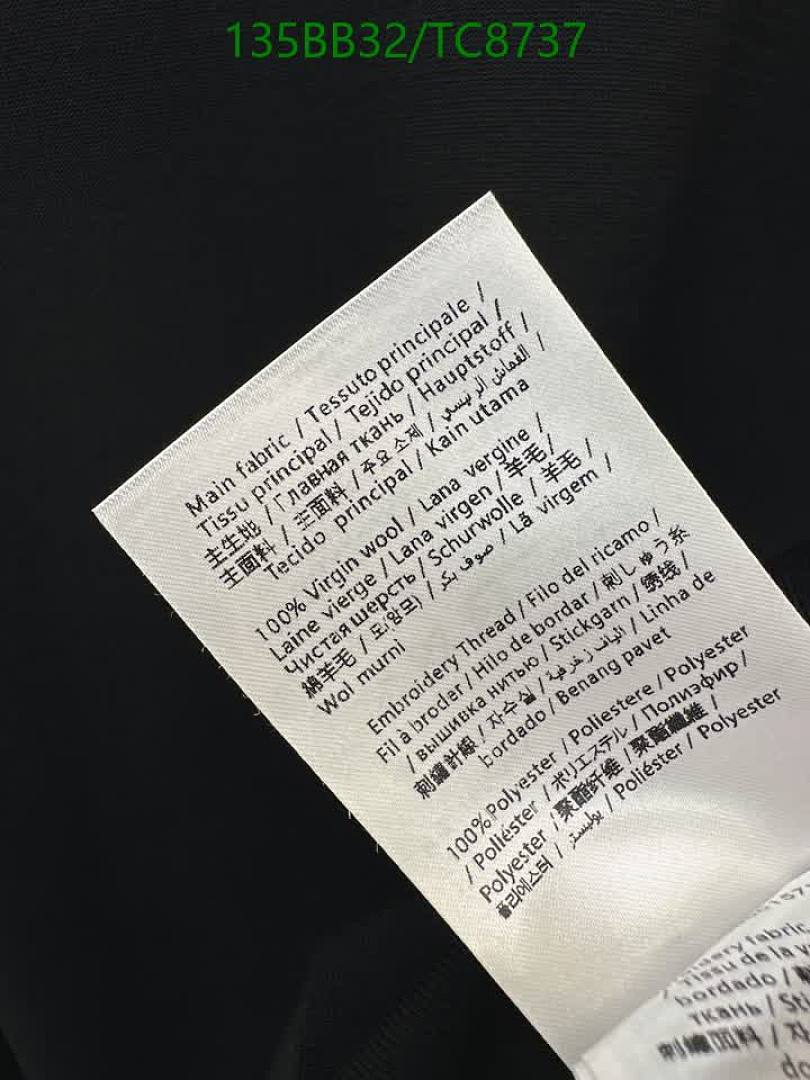 135BB32/TC8737
Main fabric / Tessuto principale /
Tissu principal / Tejido principal /
主生地 / Главная ткань / Hauptstoff /
主面料 / 主面料 / 주요 소재 / القماش الرئيسي /
Tecido principal / Kain utama
100% Virgin wool / Lana vergine /
Laine vierge / Lana virgen / 羊毛 /
Чистая шерсть / Schurwolle / 羊毛 /
綿羊毛 / 모(양모) / صوف بكر / Lã virgem /
Wol murni
Embroidery Thread / Filo del ricamo /
Fil à broder / Hilo de bordar / 刺しゅう糸
/ вышивка нитью / Stickgarn / 绣线 /
刺繡針線 / 자수실 / / Linha de
bordado / Benang pavet
100%Polyester / Poliestere / Polyester
/ Poliéster / ポリエステル / Полиэфир /
Polyester / 聚酯纤维 / 聚酯纖維 /
폴리에스터 / بوليستر / Poliéster / Polyester
fabric
Tissu de la
bordado /
ткань / St
刺繡面料 / 자